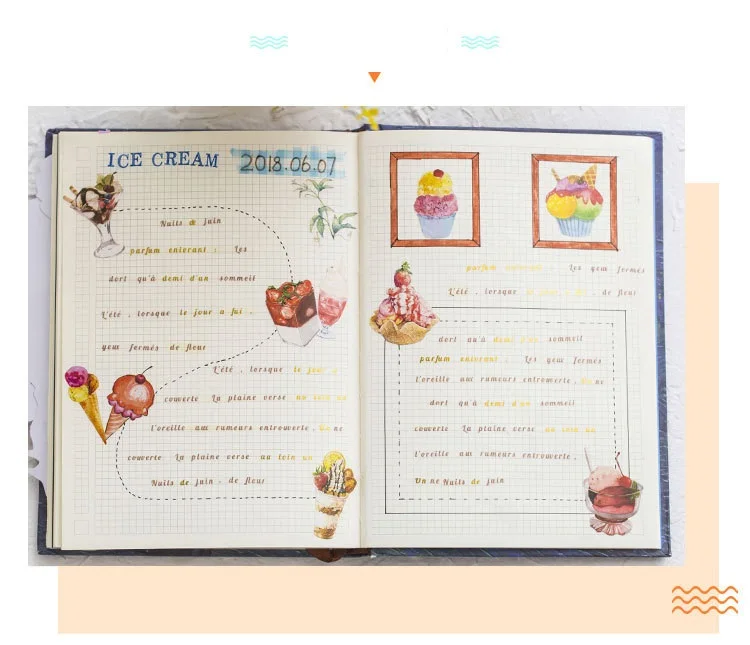 ICE CREAM 2018.06.07
Nuits de juin
parfum enivrant : Les
dort qu'à demi d'un sommeil
L'été , lorsque le jour a fui ,
yeux fermés de fleur
L'été , lorsque le jour
couverte La plaine verse au loin un
l'oreille aux rumeurs entrouverte , Un ne
couverte La plaine verse au loin un
Nuits de juin , de fleur
parfum enivrant Les yeux fermés
L'été , lorsque le jour a fui , de fleur
dort qu'à demi d'un sommeil
parfum enivrant : Les yeux fermés
l'oreille aux rumeurs entrouverte , Un ne
dort qu'à demi d'un sommeil
couverte La plaine verse au loin un
l'oreille aux rumeurs entrouverte ,
Un ne Nuits de juin